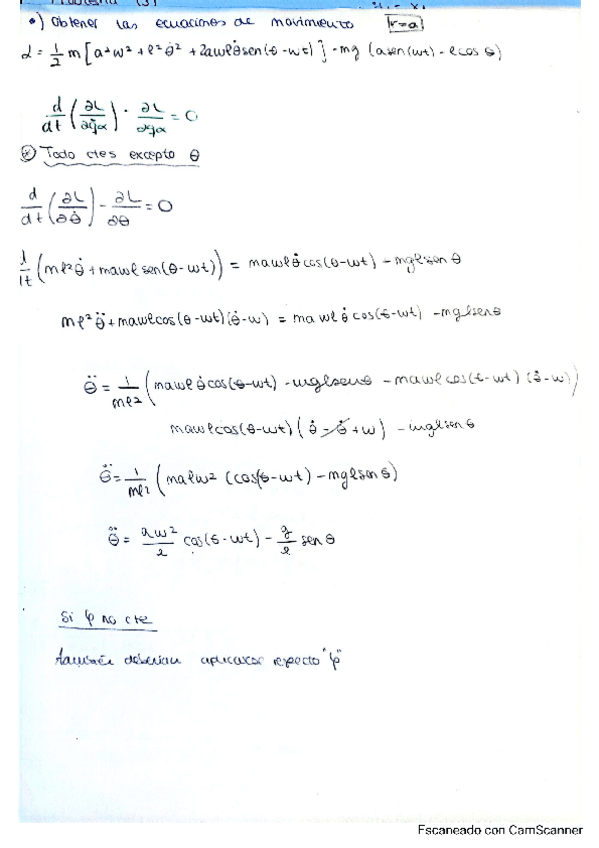 Problema (3)
•) Obtener las ecuaciones de movimiento r=a
L = 1/2 m [a²w² + l²θ̇² + 2awlθ̇sen(θ-wt)] - mg (asen(wt) - lcos θ)
d/dt (∂L/∂q̇α) - ∂L/∂qα = 0
Todo ctes excepto θ
d/dt (∂L/∂θ̇) - ∂L/∂θ = 0
d/dt (ml²θ̇ + mawl sen(θ-wt)) = mawlθ̇cos(θ-wt) - mglsen θ
ml²θ̈ + mawlcos(θ-wt)(θ̇-w) = mawlθ̇cos(θ-wt) - mglsenθ
θ̈ = 1/ml² (mawlθ̇cos(θ-wt) - mglsenθ - mawlcos(θ-wt)(θ̇-w))
mawlcos(θ-wt)(θ̇-θ̇+w) - mglsenθ
θ̈ = 1/ml² (malw² (cos(θ-wt) - mglsenθ)
θ̈ = aw²/l cos(θ-wt) - g/l senθ
Si φ no cte
También aplicarse respecto "φ"
Escaneado con CamScanner